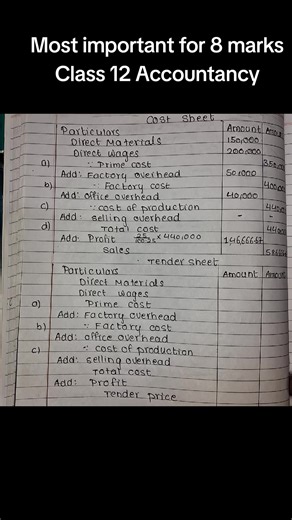 Most important for 8 marks
Class 12 Accountancy
Cost Sheet
Particulars Amount Amount
Direct Materials 150,000
Direct wages 200,000
a) ∵ Prime cost 350,000
Add: Factory overhead 50,000
b) ∵ Factory cost 400,000
Add: office overhead 40,000
c) ∵ cost of production 440,000
Add: selling overhead - -
d) Total cost 440,000
Add: Profit ×440,000 146,666.67
Sales
Tender Sheet
Particulars Amount Amount
Direct Materials
Direct wages
a) Prime cost
Add: Factory overhead
b) ∵ Factory cost
Add: office overhead
c) ∵ cost of production
Add: selling overhead
Total cost
Add: Profit
Tender price